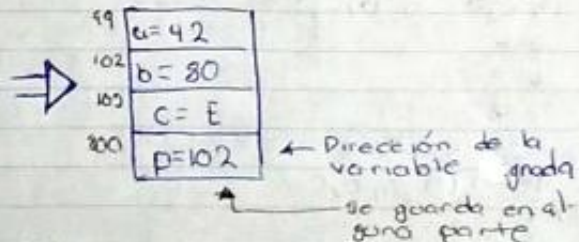 99
a= 42
102
b = 80
103
c = E
200
p=102
Dirección de la
variable gnada
se guarda en al-
guna parte